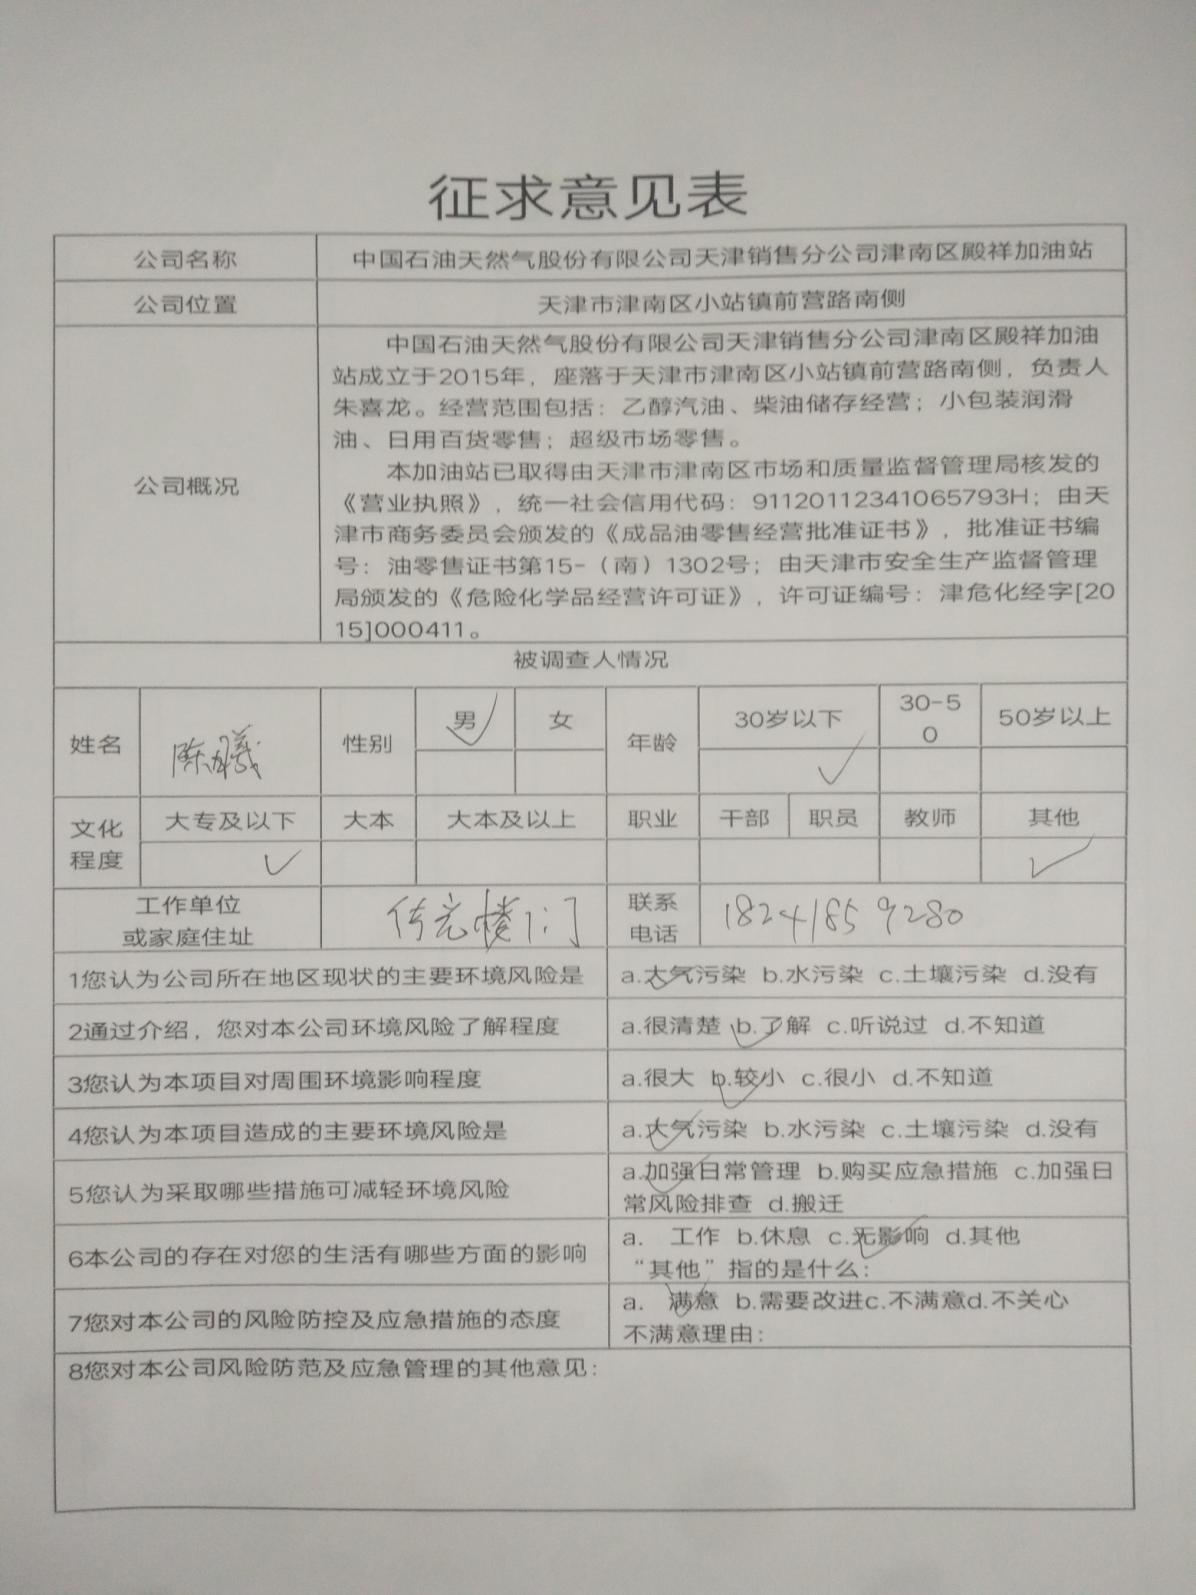 征求意见表
公司名称 中国石油天然气股份有限公司天津销售分公司津南区殿祥加油站
公司位置 天津市津南区小站镇前营路南侧
公司概况
中国石油天然气股份有限公司天津销售分公司津南区殿祥加油
站成立于2015年，座落于天津市津南区小站镇前营路南侧，负责人
朱喜龙。经营范围包括：乙醇汽油、柴油储存经营；小包装润滑
油、日用百货零售；超级市场零售。
本加油站已取得由天津市津南区市场和质量监督管理局核发的
《营业执照》，统一社会信用代码：91120112341065793H；由天
津市商务委员会颁发的《成品油零售经营批准证书》，批准证书编
号：油零售证书第15-（南）1302号；由天津市安全生产监督管理
局颁发的《危险化学品经营许可证》，许可证编号：津危化经字[20
15]000411。
被调查人情况
姓名 陈曦 性别 男 女 年龄 30岁以下 30-5
0 50岁以上
文化
程度 大专及以下 大本 大本及以上 职业 干部 职员 教师 其他
工作单位
或家庭住址 楼1门 联系
电话 18241859280
1您认为公司所在地区现状的主要环境风险是 a.大气污染 b.水污染 c.土壤污染 d.没有
2通过介绍，您对本公司环境风险了解程度 a.很清楚 b.了解 c.听说过 d.不知道
3您认为本项目对周围环境影响程度 a.很大 b.较小 c.很小 d.不知道
4您认为本项目造成的主要环境风险是 a.大气污染 b.水污染 c.土壤污染 d.没有
5您认为采取哪些措施可减轻环境风险 a.加强日常管理 b.购买应急措施 c.加强日
常风险排查 d.搬迁
6本公司的存在对您的生活有哪些方面的影响 a. 工作 b.休息 c.无影响 d.其他
“其他”指的是什么：
7您对本公司的风险防控及应急措施的态度 a. 满意 b.需要改进c.不满意d.不关心
不满意理由：
8您对本公司风险防范及应急管理的其他意见：